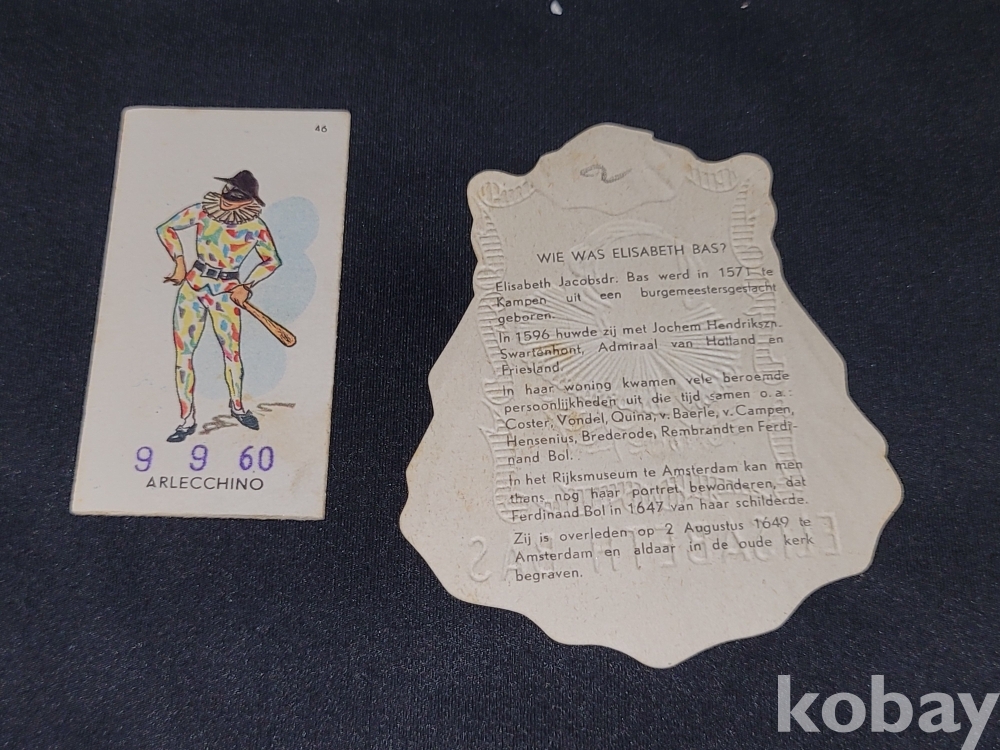 46
9 9 60
ARLECCHINO
2
WIE WAS ELISABETH BAS?
Elisabeth Jacobsdr. Bas werd in 1571 te
Kampen uit een burgemeestersgeslacht
geboren.
In 1596 huwde zij met Jochem Hendrikszn.
Swartenhont, Admiraal van Holland en
Friesland.
In haar woning kwamen vele beroemde
persoonlijkheden uit die tijd samen o.a.:
Coster, Vondel, Quina, v. Baerle, v. Campen,
Hensenius, Brederode, Rembrandt en Ferdi-
nand Bol.
In het Rijksmuseum te Amsterdam kan men
thans nog haar portret bewonderen, dat
Ferdinand Bol in 1647 van haar schilderde.
Zij is overleden op 2 Augustus 1649 te
Amsterdam en aldaar in de oude kerk
begraven.
ELISABETH BAS
kobay